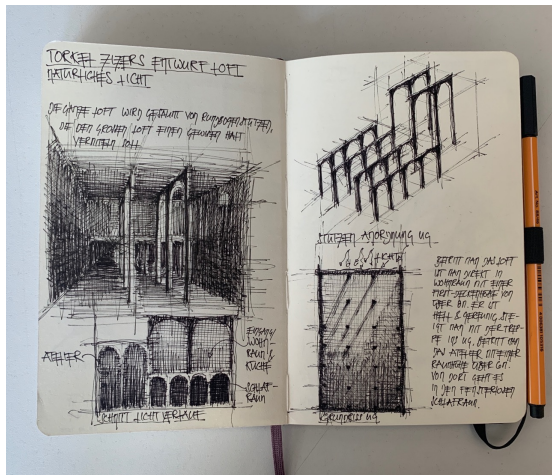 TORKEL ZIZERS ENTWURF LOFT
NATÜRLICHES LICHT
DIE GANZE LOFT WIRD GESÄUMT VON RUNDBOGENSTÜTZEN,
DIE DEN GROSSEN LOFT EINEN GEWISSEN HALT
VERMITTELN SOLL.
ATELIER
EINGANG
WOHN
RAUM &
KÜCHE
SCHLAF-
RAUM
SCHNITT LICHTVERLAUF
STÜTZEN ANORDNUNG UG
LICHT
BETRITT MAN DAS LOFT
IST MAN DIREKT IN
WOHNRAUM MIT EINER
FIRST-DECKENHÖHE VON
ÜBER 8M. ER IST
HELL & GERÄUMIG. STE-
IGT MAN MIT DER TREP-
PE INS UG. BETRITT MAN
DAS ATELIER MIT EINER
RAUMHÖHE ÜBER 6M.
VON DORT GEHT ES
IN DEN FENSTERLOSEN
SCHLAFRAUM.
GRUNDRISS UG